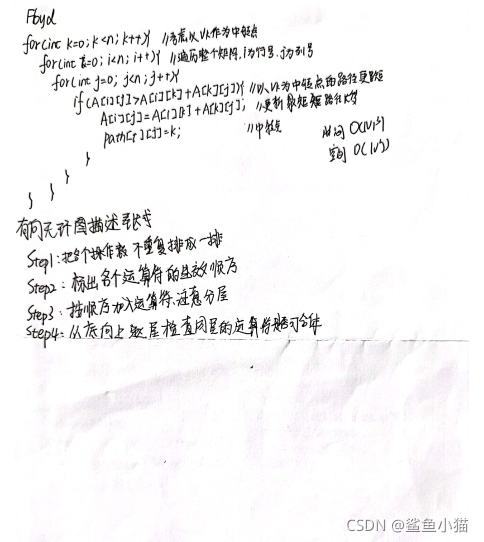 Floyd
for(int k=0; k<n; k++){ //考虑以Vk作为中转点
for(int i=0; i<n; i++){ //遍历整个矩阵, i为行号, j为列号
for(int j=0; j<n; j++){
if(A[i][j]>A[i][k]+A[k][j]){ //以Vk为中转点的路径更短
A[i][j]=A[i][k]+A[k][j]; //更新最短路径长度
path[i][j]=k; //中转点
时间 O(|V|³)
空间 O(|V|²)
}
}
}
}
有向无环图描述表达式
Step1: 把各个操作数不重复排成一排
Step2: 标出各个运算符的生效顺序
Step3: 按顺序加入运算符, 注意分层
Step4: 从底向上逐层检查同层的运算符是否可合体
CSDN @鲨鱼小猫